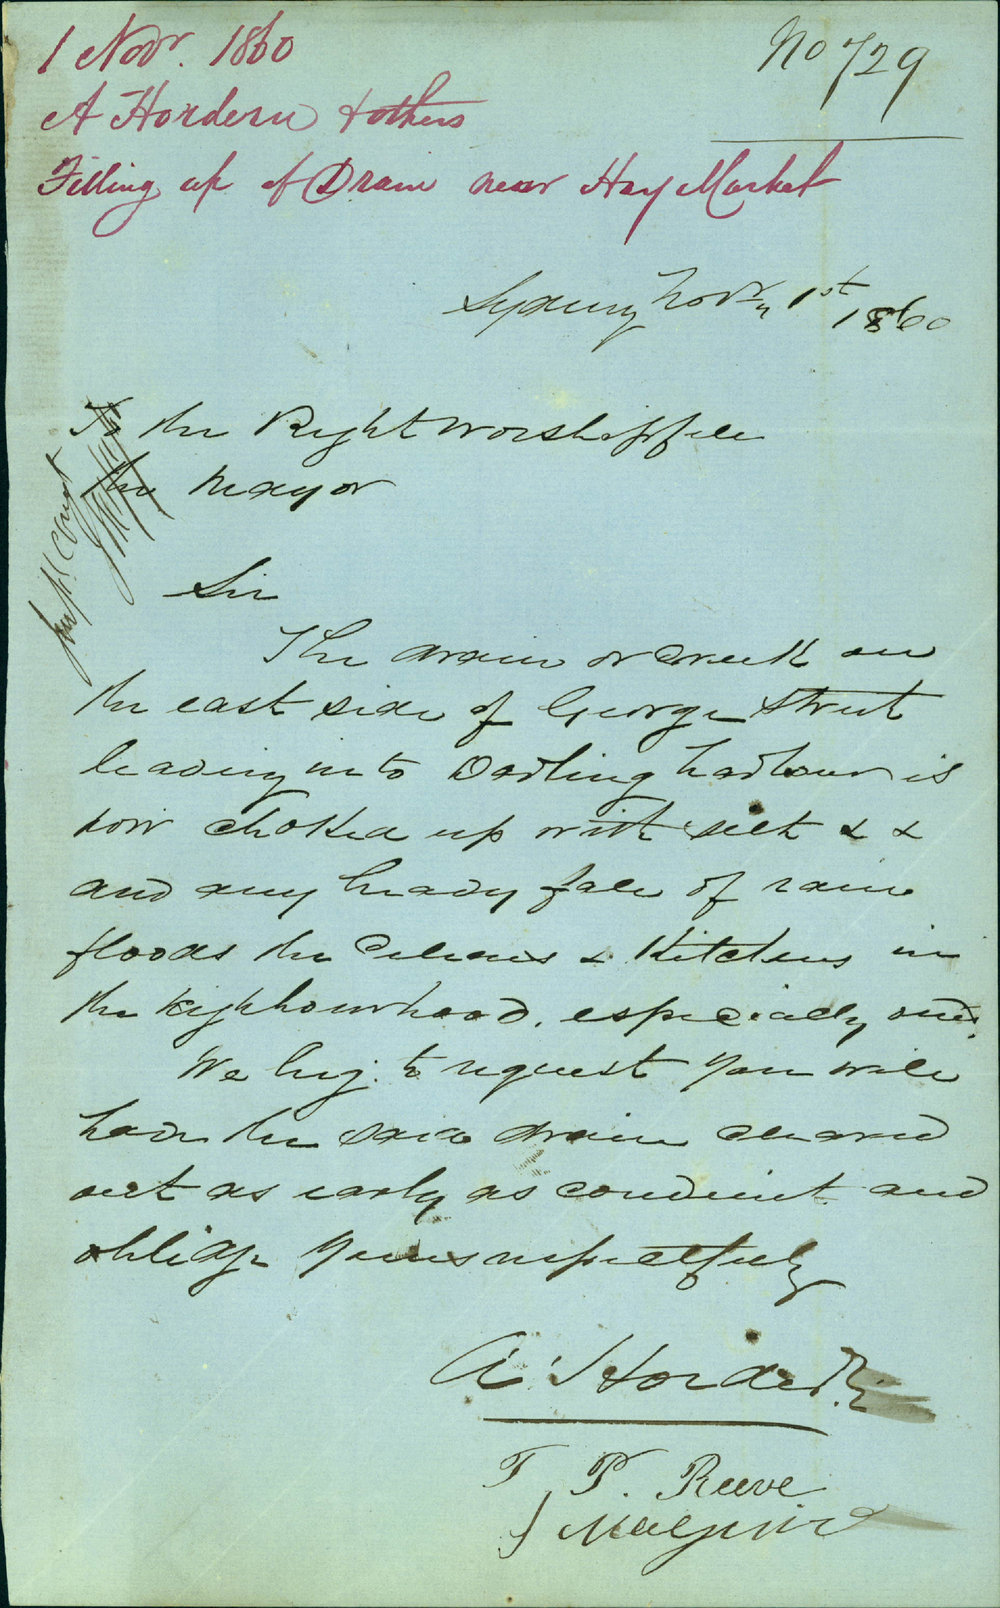 1 Novr. 1860
No 729
A Hordern & others
Filling up of Drain near Hay Market
Sydney Novr 1st 1860
To the Right Worshipfull
the Mayor
Sir
The drain or creek on
the east side of George Street
leading into Darling harbour is
now choked up with silt & &
and any heavy fall of rain
floods the Cellars & Kitchens in
the Neighbourhood. especially ours.
We beg to request you will
have the said drain cleared
out as early as convenient and
oblidge yours respectfully
A. Hordern
T P. Reeve
J